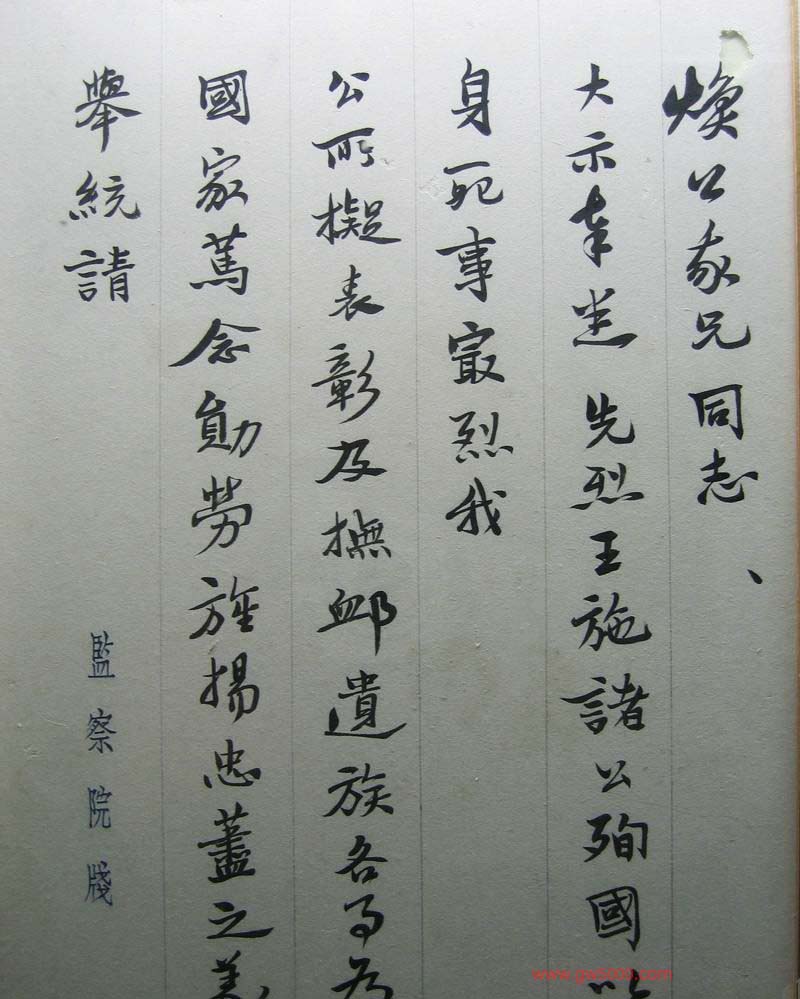 煥公家兄同志
大示奉悉 先烈王施諸公殉國以
身死事最烈我
公所擬表彰及撫卹遺族各事為
國家篤念勛勞旌揚忠藎之美
舉統請
監察院牋
www.gm5000.com